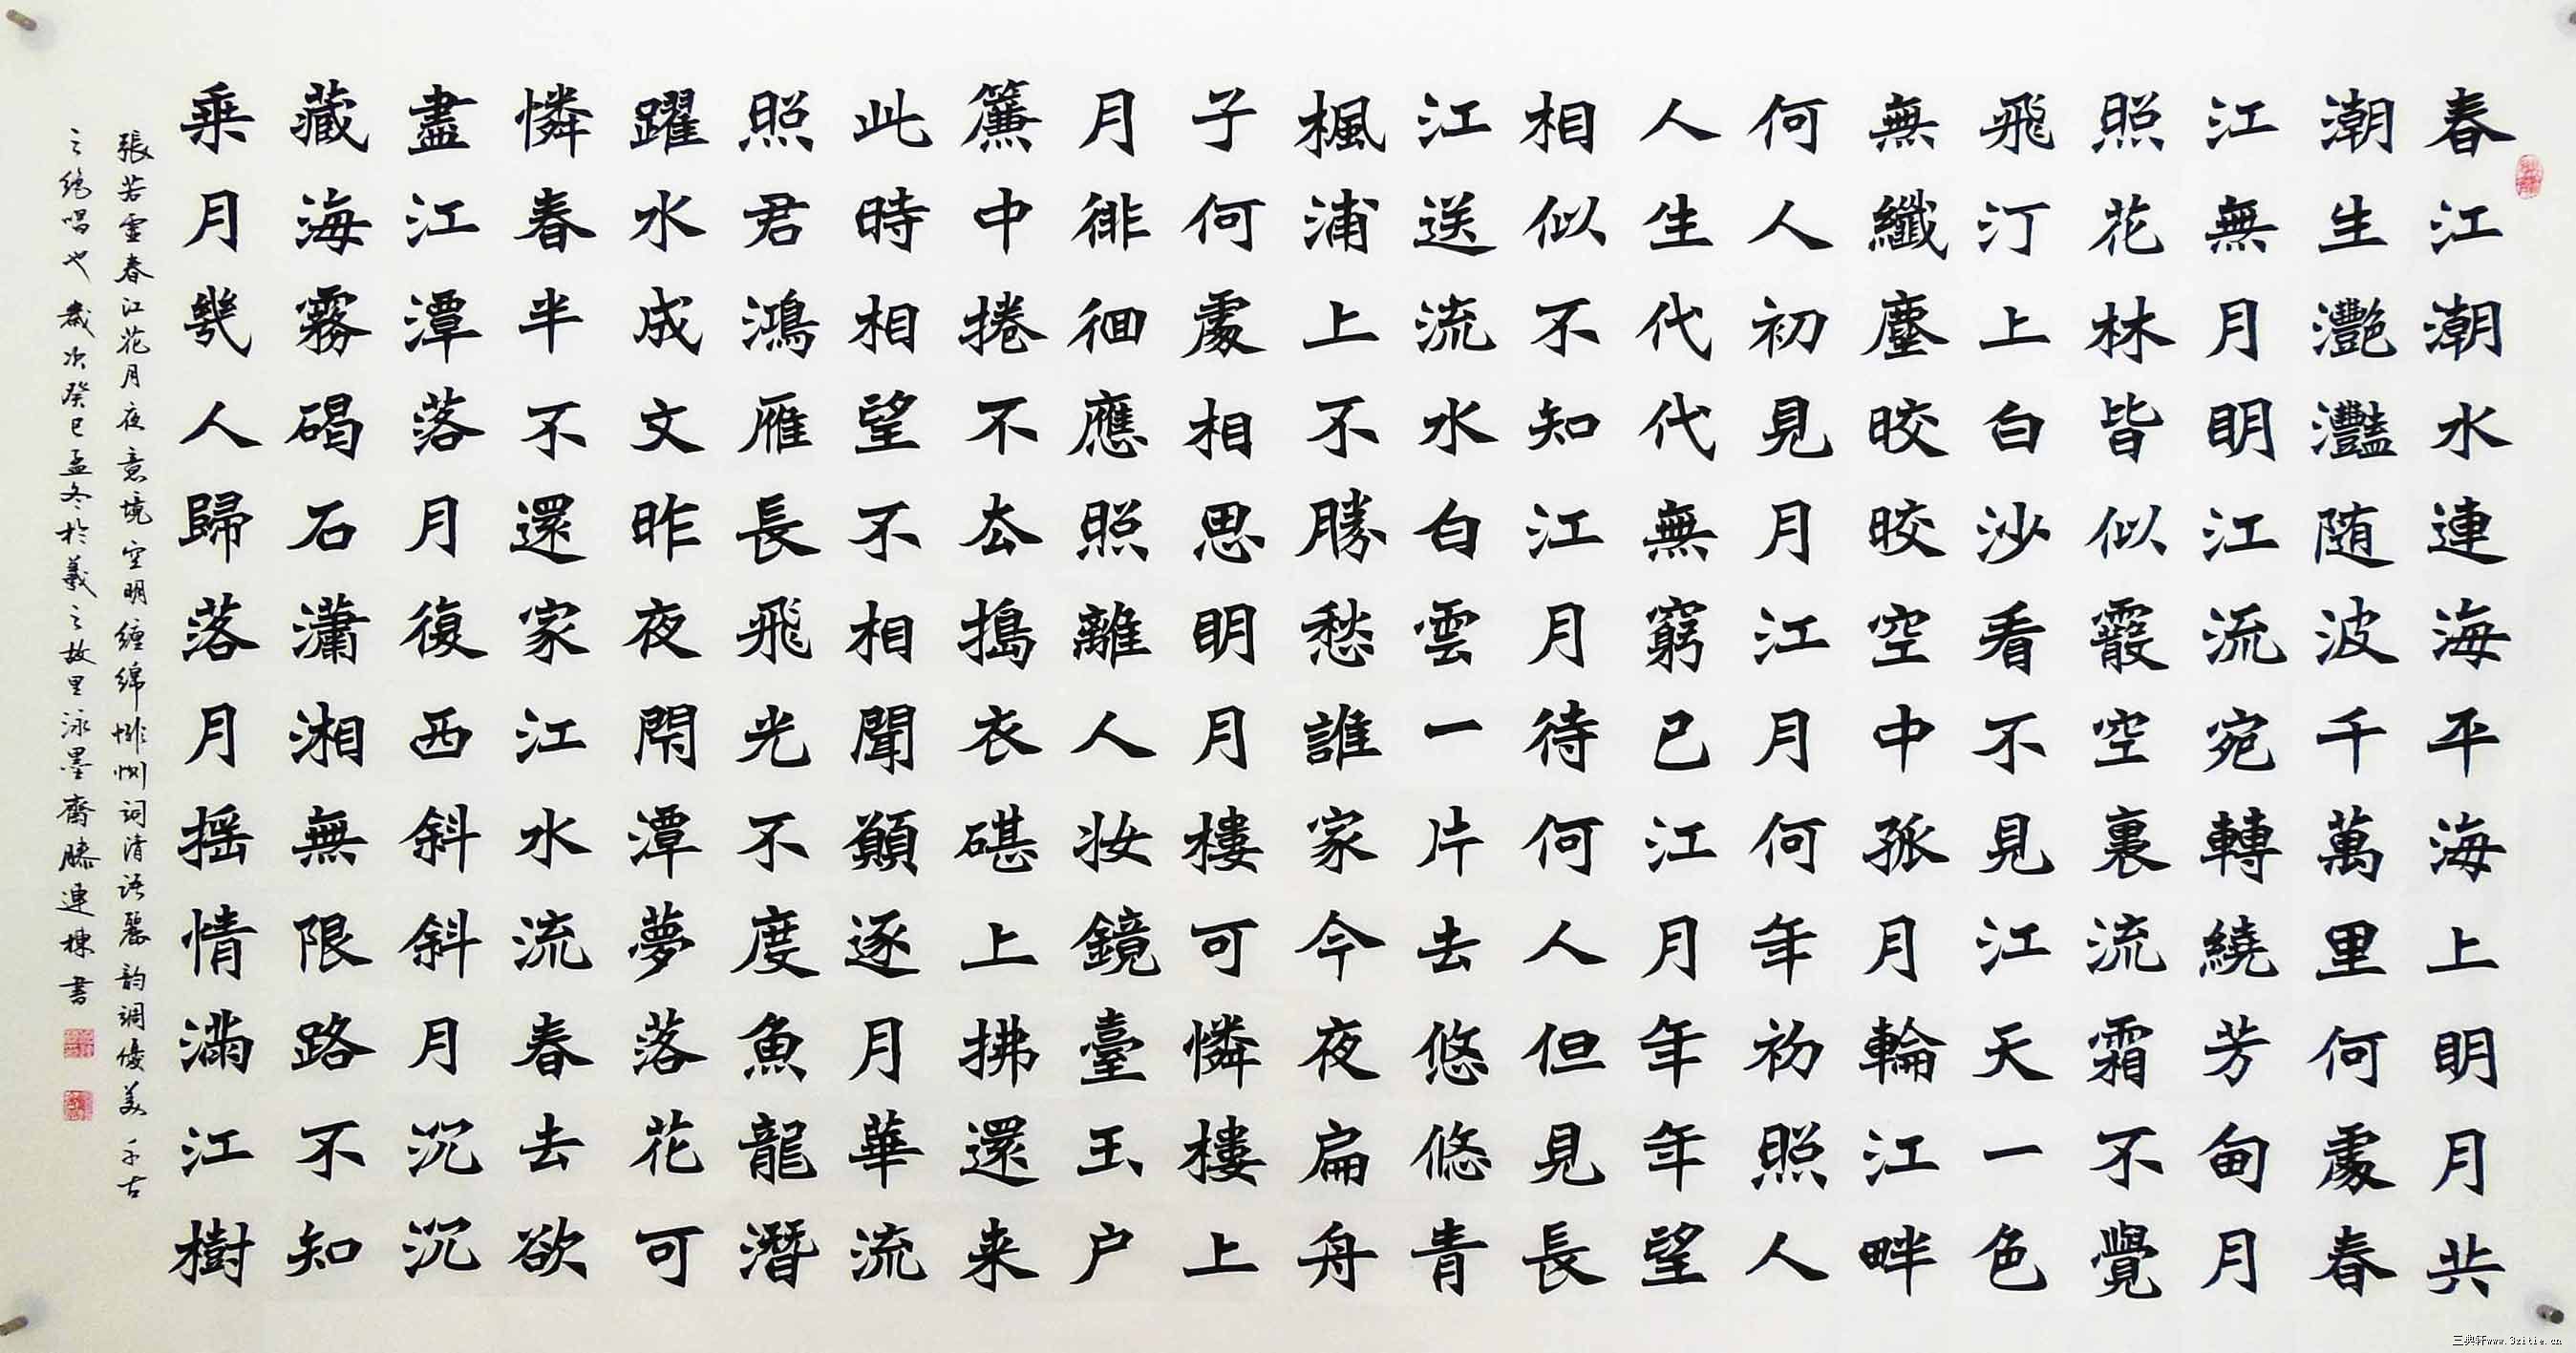 春江潮水連海平海上明月共
潮生灧灩随波千萬里何處春
江無月明江流宛轉繞芳甸月
照花林皆似霰空裏流霜不覺
飛汀上白沙看不見江天一色
無纖塵皎皎空中孤月輪江畔
何人初見月江月何年初照人
人生代代無窮已江月年年望
相似不知江月待何人但見長
江送流水白雲一片去悠悠青
楓浦上不勝愁誰家今夜扁舟
子何處相思明月樓可憐樓上
月徘徊應照離人妝鏡臺玉户
簾中捲不去搗衣碪上拂還来
此時相望不相聞願逐月華流
照君鴻雁長飛光不度魚龍潛
躍水成文昨夜閒潭夢落花可
憐春半不還家江水流春去欲
盡江潭落月復西斜斜月沉沉
藏海霧碣石瀟湘無限路不知
乘月幾人歸落月摇情滿江樹
張若虛春江花月夜意境空明纏綿悱惻词清语麗韵調優美千古
之絶唱也歲次癸巳孟冬於羲之故里泳墨齋滕連棟書
三典轩www.3zitie.cn